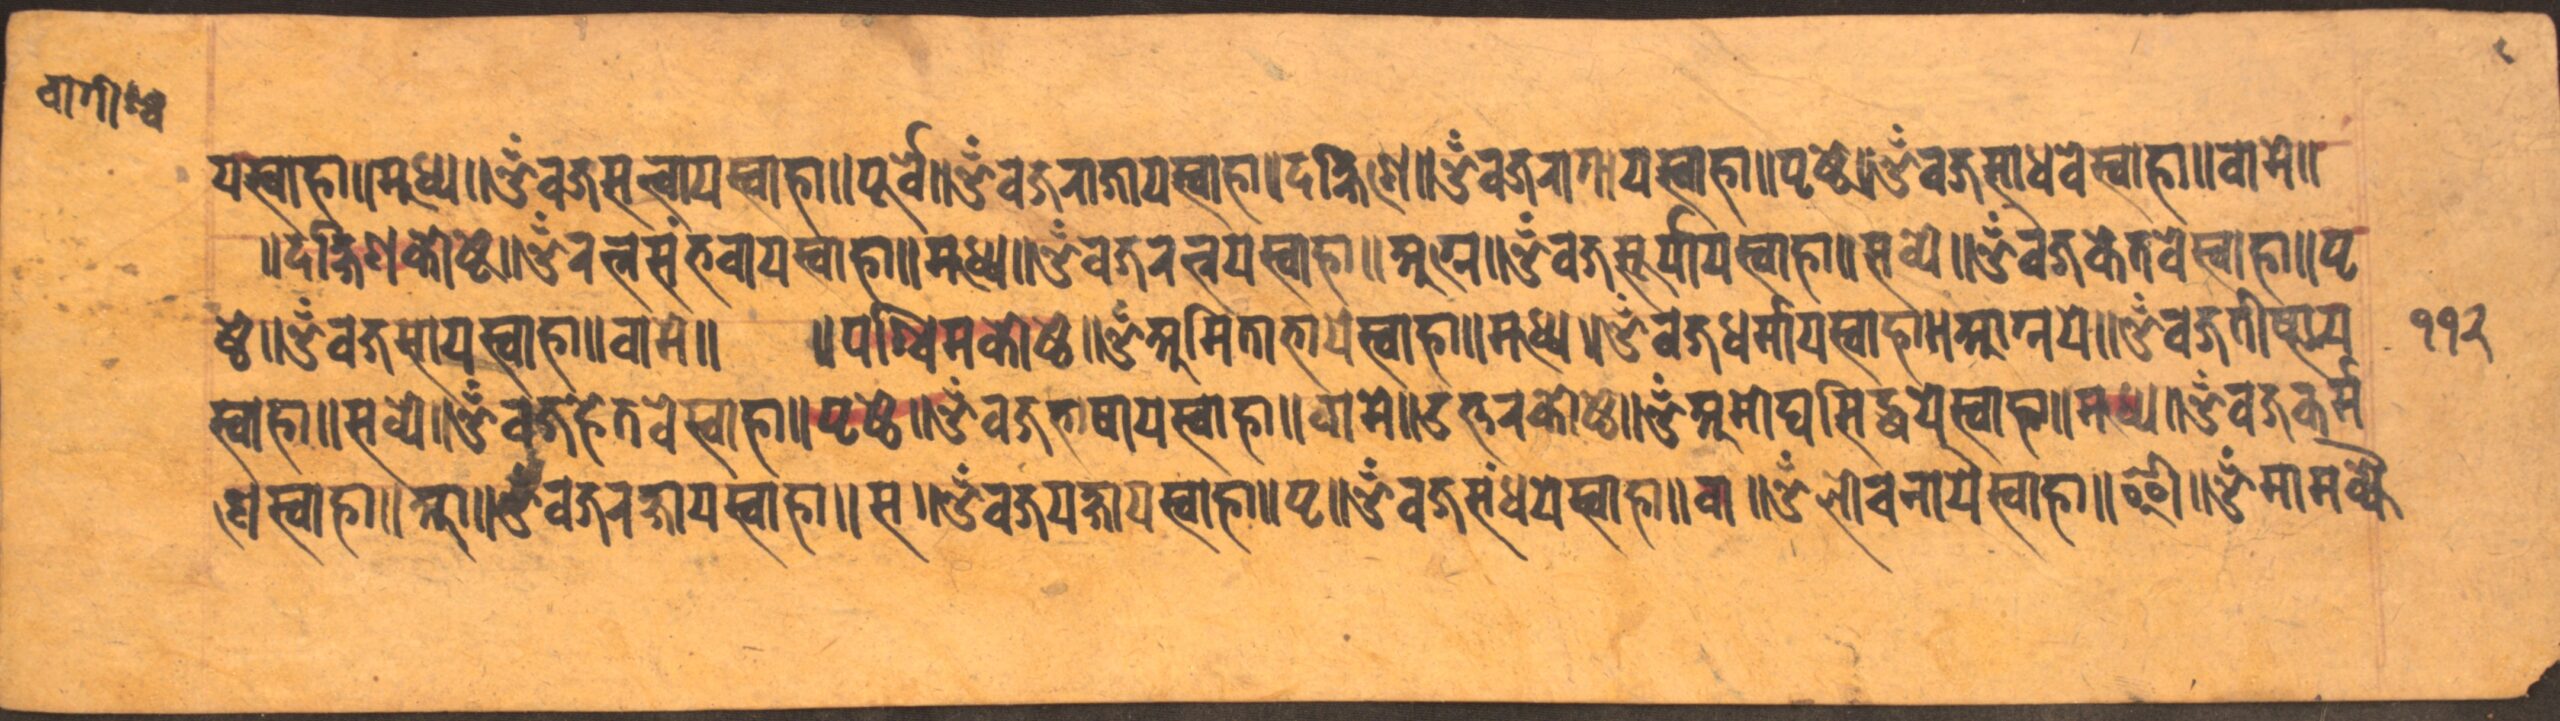 वागीश्व
यस्वाहा॥मध्य॥ॐवज्रसत्त्वायस्वाहा॥पूर्वे॥ॐवज्रराजायस्वाहा॥दक्षिणे॥ॐवज्ररागायस्वाहा॥पृष्ठे॥ॐवज्रसाधवेस्वाहा॥वामे॥
॥दक्षिणकोष्ठे॥ॐरत्नसंभवायस्वाहा॥मध्य॥ॐवज्ररत्नयस्वाहा॥अग्न॥ॐवज्रसूर्यायस्वाहा॥सव्ये॥ॐवज्रकेतवेस्वाहा॥पृ
ष्ठे॥ॐवज्रहासायस्वाहा॥वामे॥ ॥पश्चिमकोष्ठे॥ॐअमिताभायस्वाहा॥मध्य॥ॐवज्रधर्मायस्वाहा॥आग्नये॥ॐवज्रतीक्ष्णाय
११२
स्वाहा॥सव्ये॥ॐवज्रहेतवेस्वाहा॥पृष्ठे॥ॐवज्रभाषायस्वाहा॥वामे॥उत्तरकोष्ठे॥ॐअमोघसिद्धयेस्वाहा॥मध्य॥ॐवज्रकर्म
णेस्वाहा॥आ॥ॐवज्ररक्षायस्वाहा॥स॥ॐवज्रयक्षायस्वाहा॥पृ॥ॐवज्रसंधयेस्वाहा॥वा॥ॐलोचनायैस्वाहा॥ ॥ॐमामक्यै